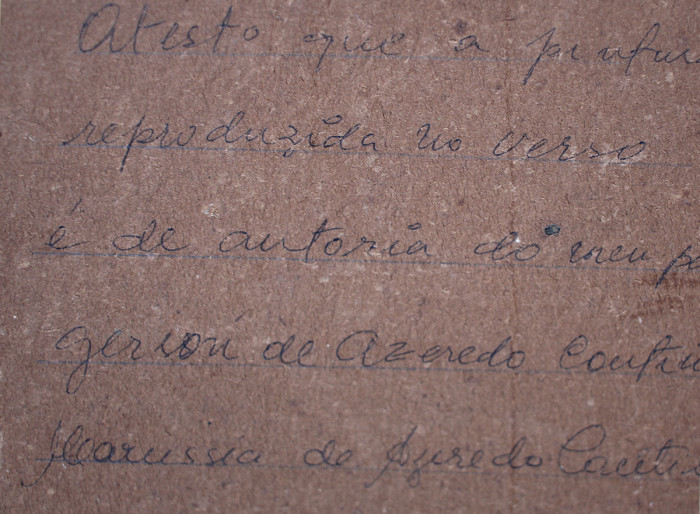 Atesto que a pintu
reproduzida no verso
é de autoria do meu p
Gerson de Azeredo Coutin
Marussia de Azeredo Coutin